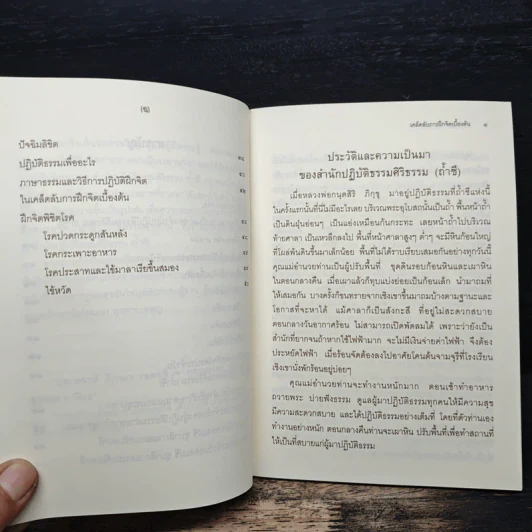 (ฉ)
ปัจฉิมลิขิต
ปฏิบัติธรรมเพื่ออะไร
ภาษาธรรมและวิธีการปฏิบัติฝึกจิต
ในเคล็ดลับการฝึกจิตเบื้องต้น
ฝึกจิตพิชิตโรค
โรคปวดกระดูกสันหลัง
โรคกระเพาะอาหาร
โรคประสาทและไข้มาลาเรียขึ้นสมอง
ไข้หวัด
เคล็ดลับการฝึกจิตเบื้องต้น ๑
ประวัติและความเป็นมา
ของสำนักปฏิบัติธรรมศิริธรรม (ถ้ำชี)
เมื่อหลวงพ่อกนุตสิริ ภิกฺขุ มาอยู่ปฏิบัติธรรมที่ถ้ำชีแห่งนี้
ในครั้งแรกนั้นที่นี่ไม่มีอะไรเลย บริเวณพระอุโบสถนั้นเป็นถ้ำ พื้นหน้าถ้ำ
เป็นดินฝุ่นอ่อนๆ เป็นแอ่งเหมือนก้นกระทะ เลยหน้าถ้ำไปบริเวณ
ท้ายศาลา เป็นเหวลึกลงไป พื้นที่หน้าศาลาสูงๆ ต่ำๆ จะมีหินก้อนใหญ่
ที่โผล่พ้นดินขึ้นมาเล็กน้อย พื้นที่ไม่ได้ราบเรียบเสมอกันอย่างทุกวันนี้
คุณแม่อำนวยท่านเป็นผู้ปรับพื้นที่ ขุดดินรอบก้อนหินและเผาหิน
ในตอนกลางคืน เมื่อเผาแล้วก็ทุบแบ่งย่อยเป็นก้อนเล็ก นำมาถมที่
ให้เสมอกัน บางครั้งก็ขนทรายจากเชิงเขาขึ้นมาถมบ้างตามฐานะและ
โอกาสที่จะหาได้ แม้ศาลาก็เป็นสังกะสี ที่อยู่ไม่สะดวกสบาย
ตอนกลางวันอากาศร้อน ไม่สามารถเปิดพัดลมได้ เพราะว่ายังเป็น
สำนักที่ยากจนถ้าหากใช้ไฟฟ้ามาก จะไม่มีเงินจ่ายค่าไฟฟ้า จึงต้อง
ประหยัดไฟฟ้า เมื่อร้อนจัดต้องลงไปอาศัยโคนต้นจามจุรีที่โรงเรียน
เชิงเขานั่งพักร้อนอยู่บ่อยๆ
คุณแม่อำนวยท่านจะทำงานหนักมาก ตอนเช้าทำอาหาร
ถวายพระ บ่ายฟังธรรม ดูแลผู้มาปฏิบัติธรรมทุกคนให้มีความสุข
มีความสะดวกสบาย และได้ปฏิบัติธรรมอย่างเต็มที่ โดยที่ตัวท่านเอง
ทำงานอย่างหนัก ตอนกลางคืนท่านจะเผาหิน ปรับพื้นที่เพื่อทำสถานที่
ให้เป็นที่สบายแก่ผู้มาปฏิบัติธรรม